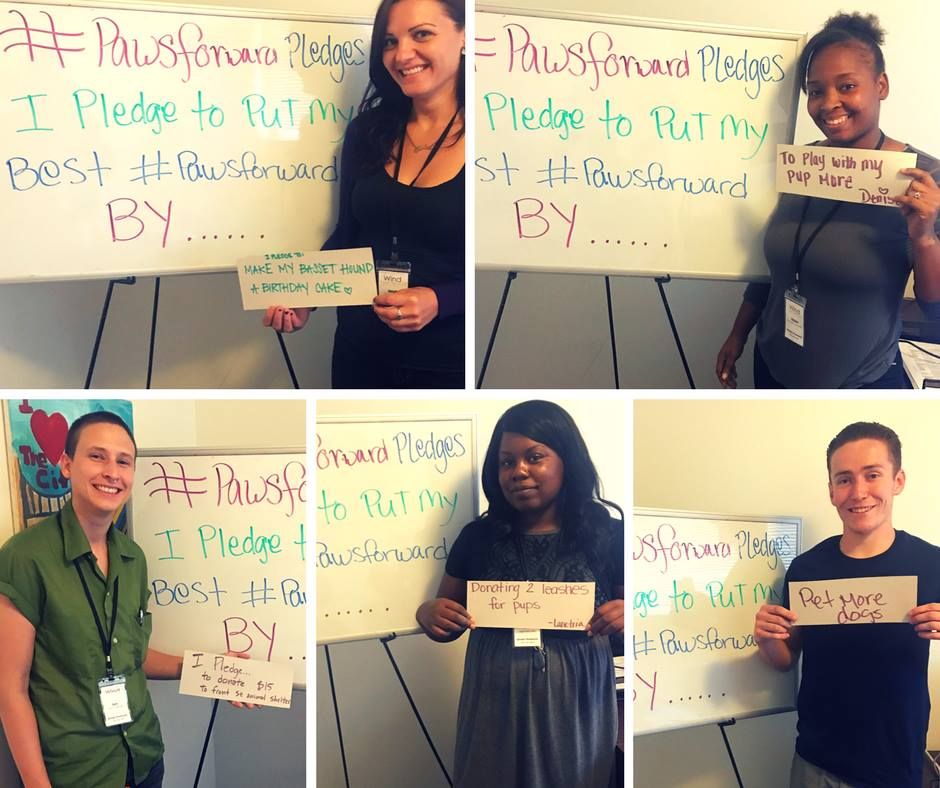 #Pawsforward Pledges
I Pledge to Put My
Best #Pawsforward
BY ......
I PLEDGE TO:
MAKE MY BASSET HOUND
A BIRTHDAY CAKE
Wind
Pawsforward Pledges
Pledge to Put My
st #Pawsforward
BY ......
To Play with my
Pup More
Denise
Wind
I
The
Cit
#Pawsfo
I Pledge t
Best #Pa
BY ..
I Pledge...
to donate $15
To front se animal shelter
Wind
orward Pledges
to Put My
Pawsforward
.....
Donating 2 leashes
for pups
-Lanetria
wsforward Pledges
ge to Put M
#Pawsforwa
Y ......
Pet More
dogs